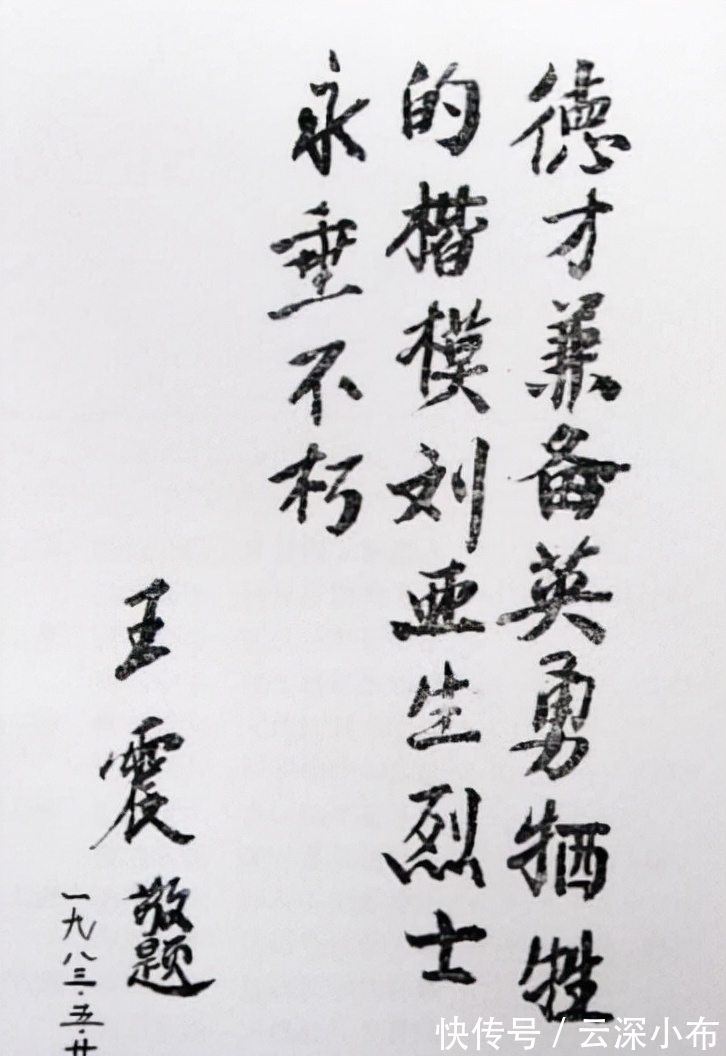 德才兼备英勇牺牲
的楷模刘亚生烈士
永垂不朽
王震敬题
一九八三·五·廿
快传号／云深小布